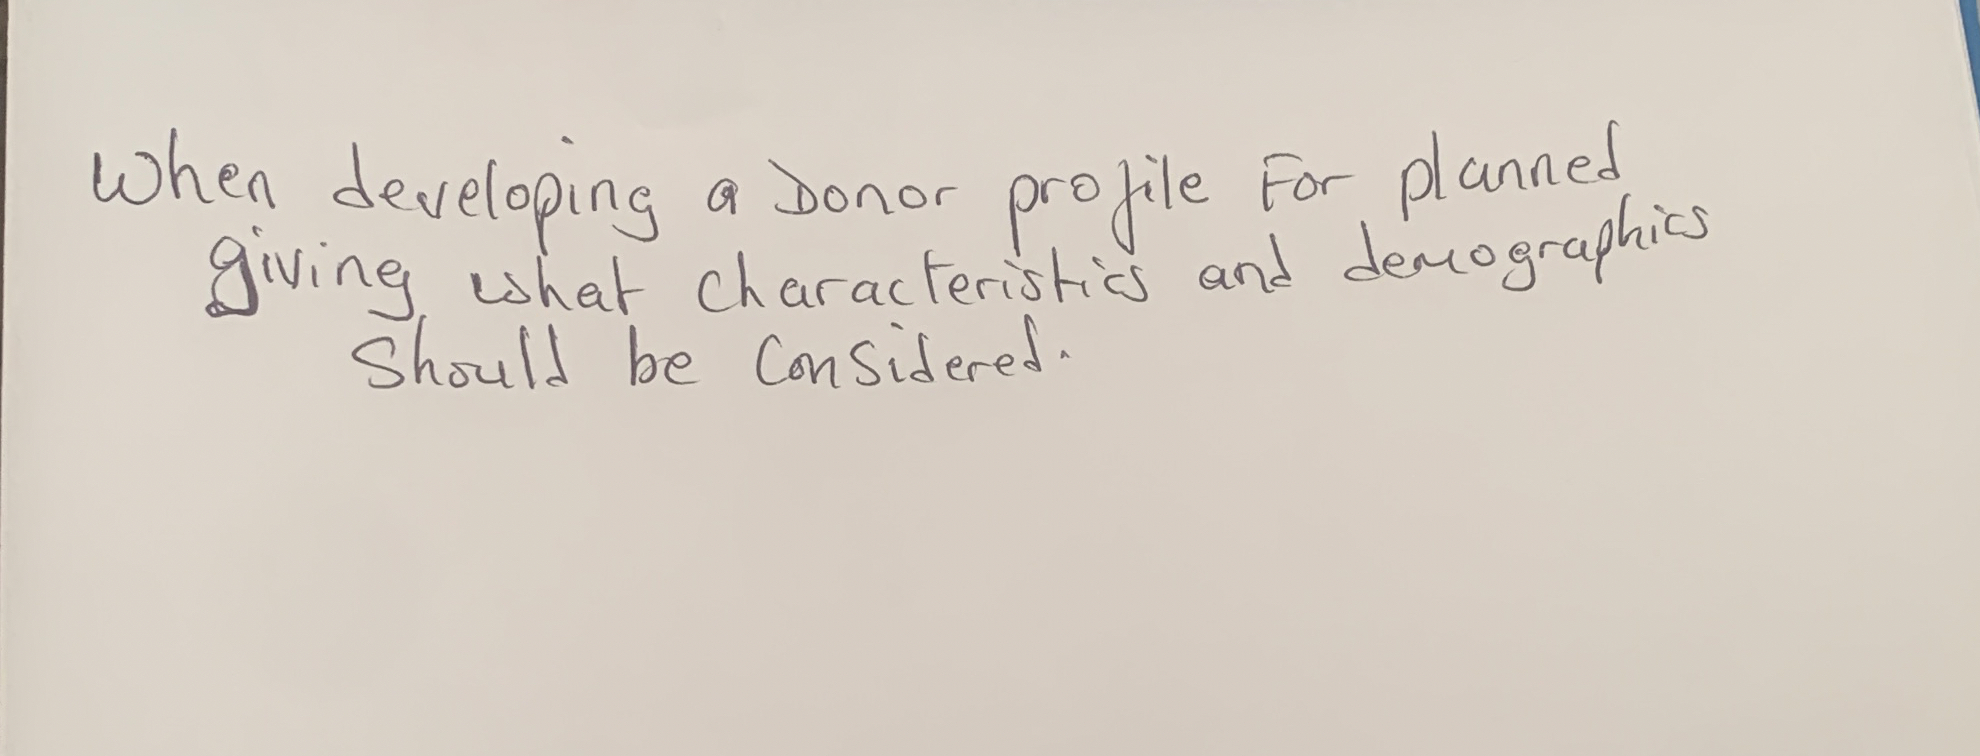 When developing a Donor profile For planned
giving, what characteristics and demographics
Should be Considered.